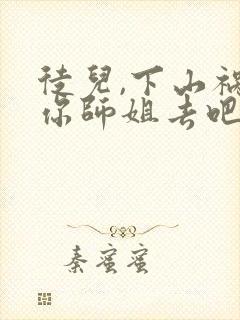 徒兒,下山禍
你師姐去吧
秦蜜蜜